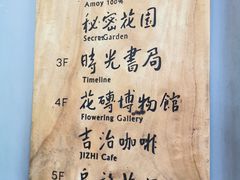 Amoy 100%
秘密花园
SecretGarden
3F
時光書局
Timeline
4F
花磚博物館
Flowering Gallery
吉治咖啡
JIZHI Cafe
5F